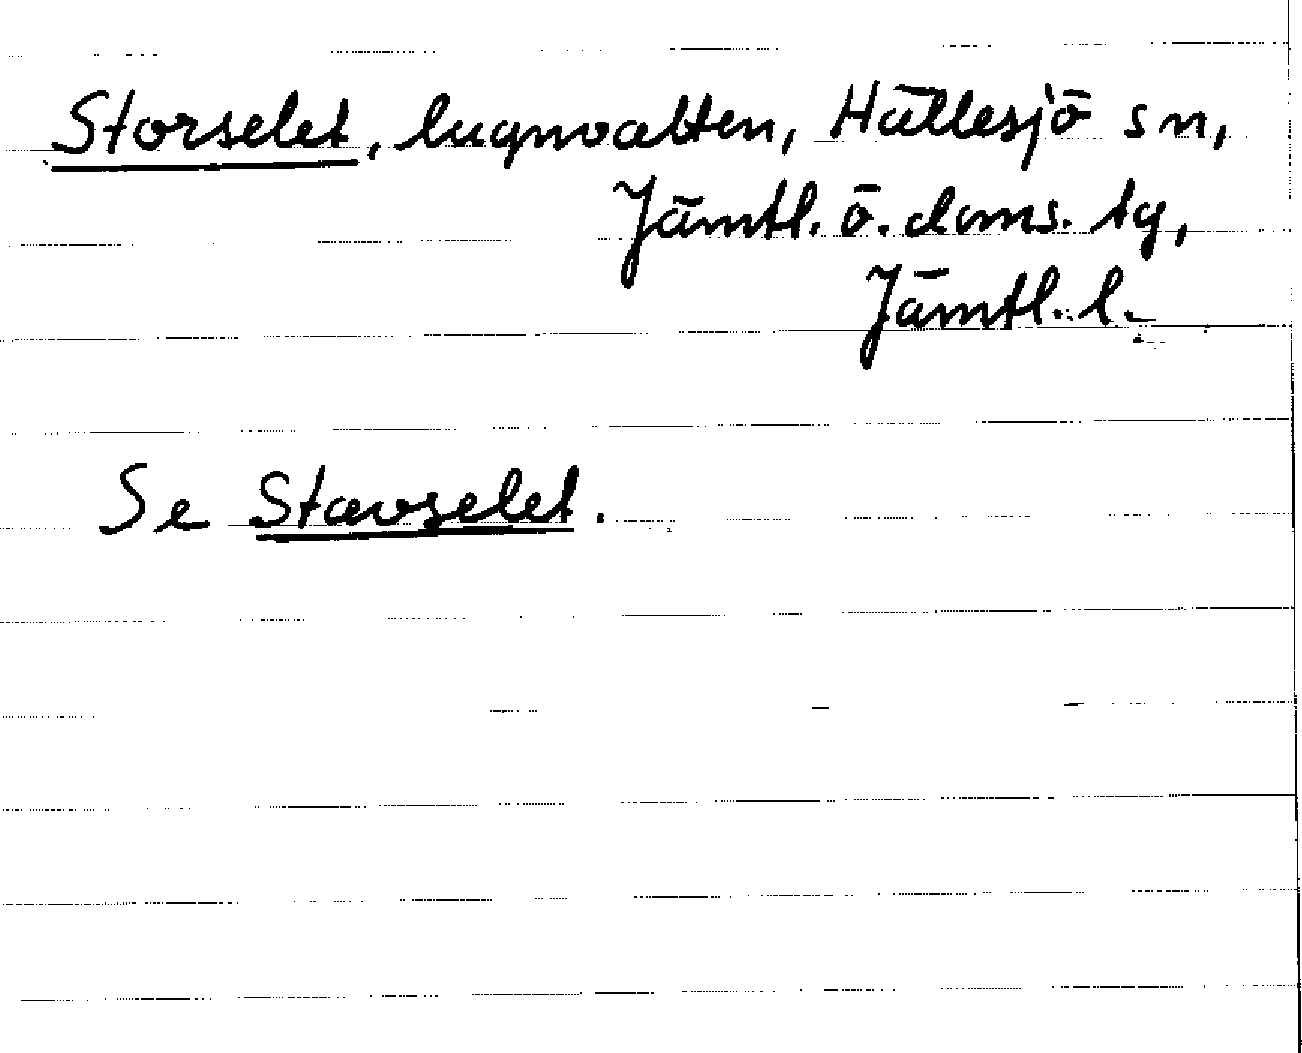 Storselet, lugnvatten, Hällesjö sn,
Jämtl. ö. doms. tg,
Jämtl. l.
Se Stavselet.